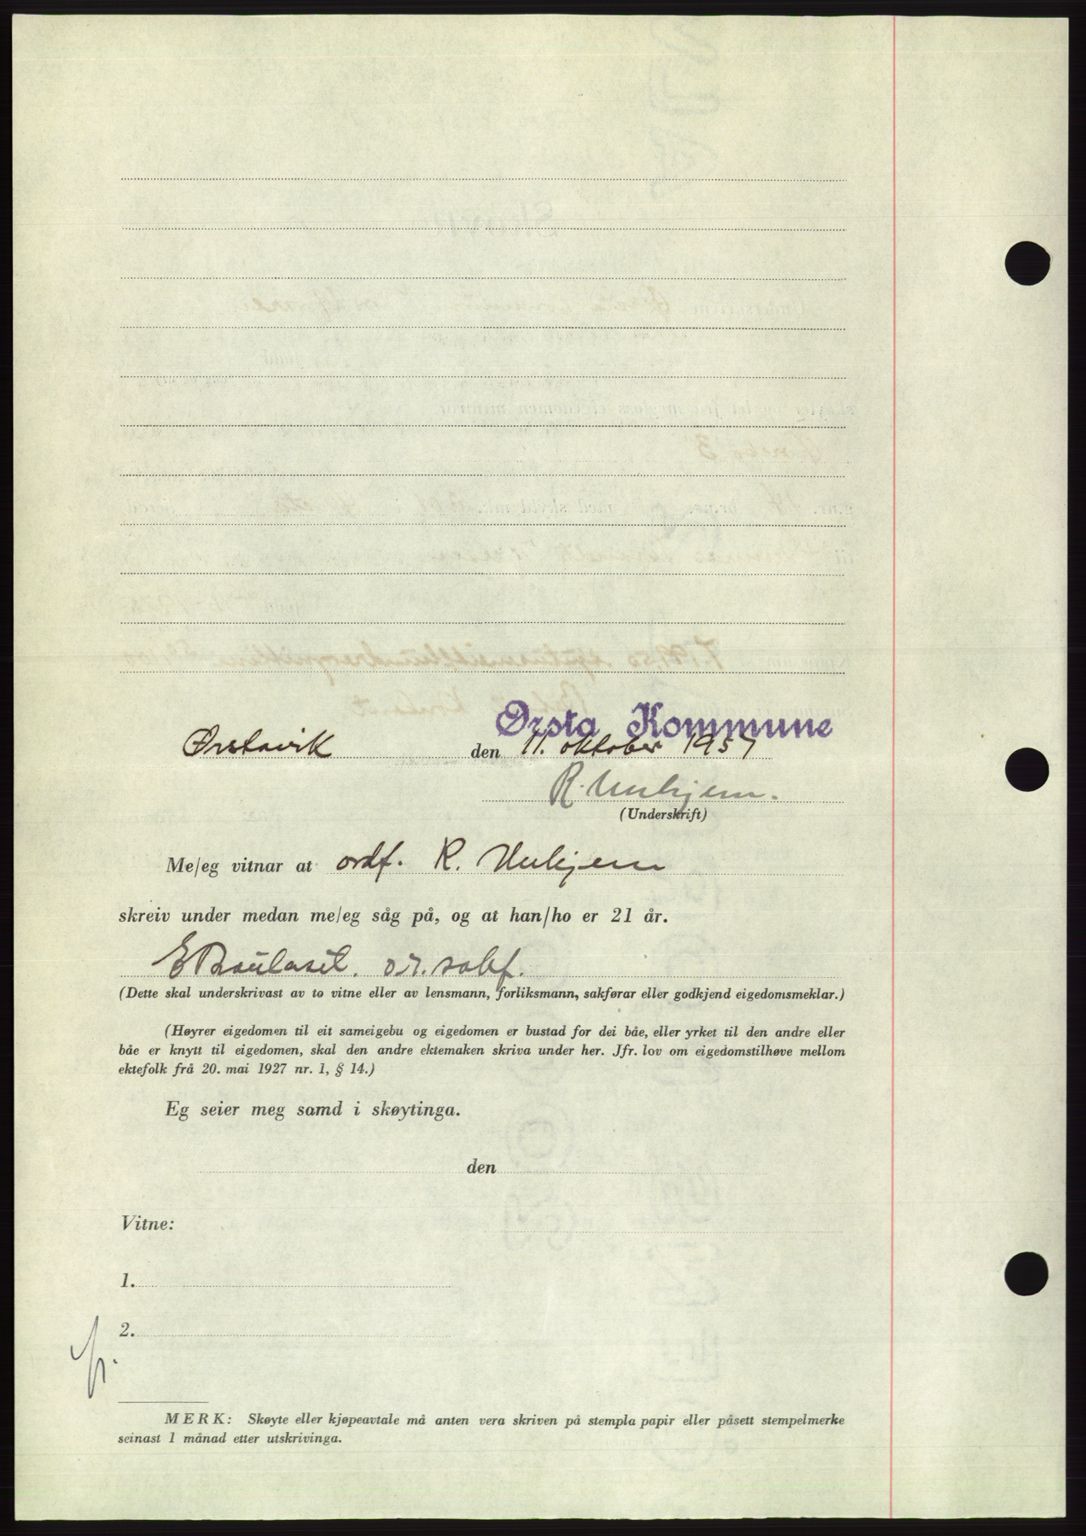 Ørsta Kommune
Ørstavik den 11. oktober 1957
R. Unhjem.
(Underskrift)
Me/eg vitnar at ordf. R. Unhjem
skreiv under medan me/eg såg på, og at han/ho er 21 år.
o.r.sakf.
(Dette skal underskrivast av to vitne eller av lensmann, forliksmann, sakførar eller godkjend eigedomsmeklar.)
(Høyrer eigedomen til eit sameigebu og eigedomen er bustad for dei båe, eller yrket til den andre eller
båe er knytt til eigedomen, skal den andre ektemaken skriva under her. Jfr. lov om eigedomstilhøve mellom
ektefolk frå 20. mai 1927 nr. 1, § 14.)
Eg seier meg samd i skøytinga.
den
Vitne:
1.
2.
MERK: Skøyte eller kjøpeavtale må anten vera skriven på stempla papir eller påsett stempelmerke
seinast 1 månad etter utskrivinga.